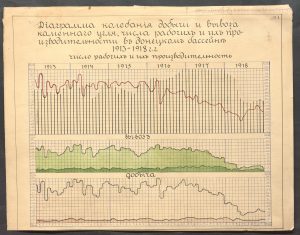 Діаграмма колебанія добычи и вывоза
каменнаго угля, числа рабочихъ и ихъ про-
изводительности въ донецкомъ бассейнѣ
1913-1918 г.г.
число рабочихъ и ихъ производительность
1913 1914 1915 1916 1917 1918
вывозъ
добыча